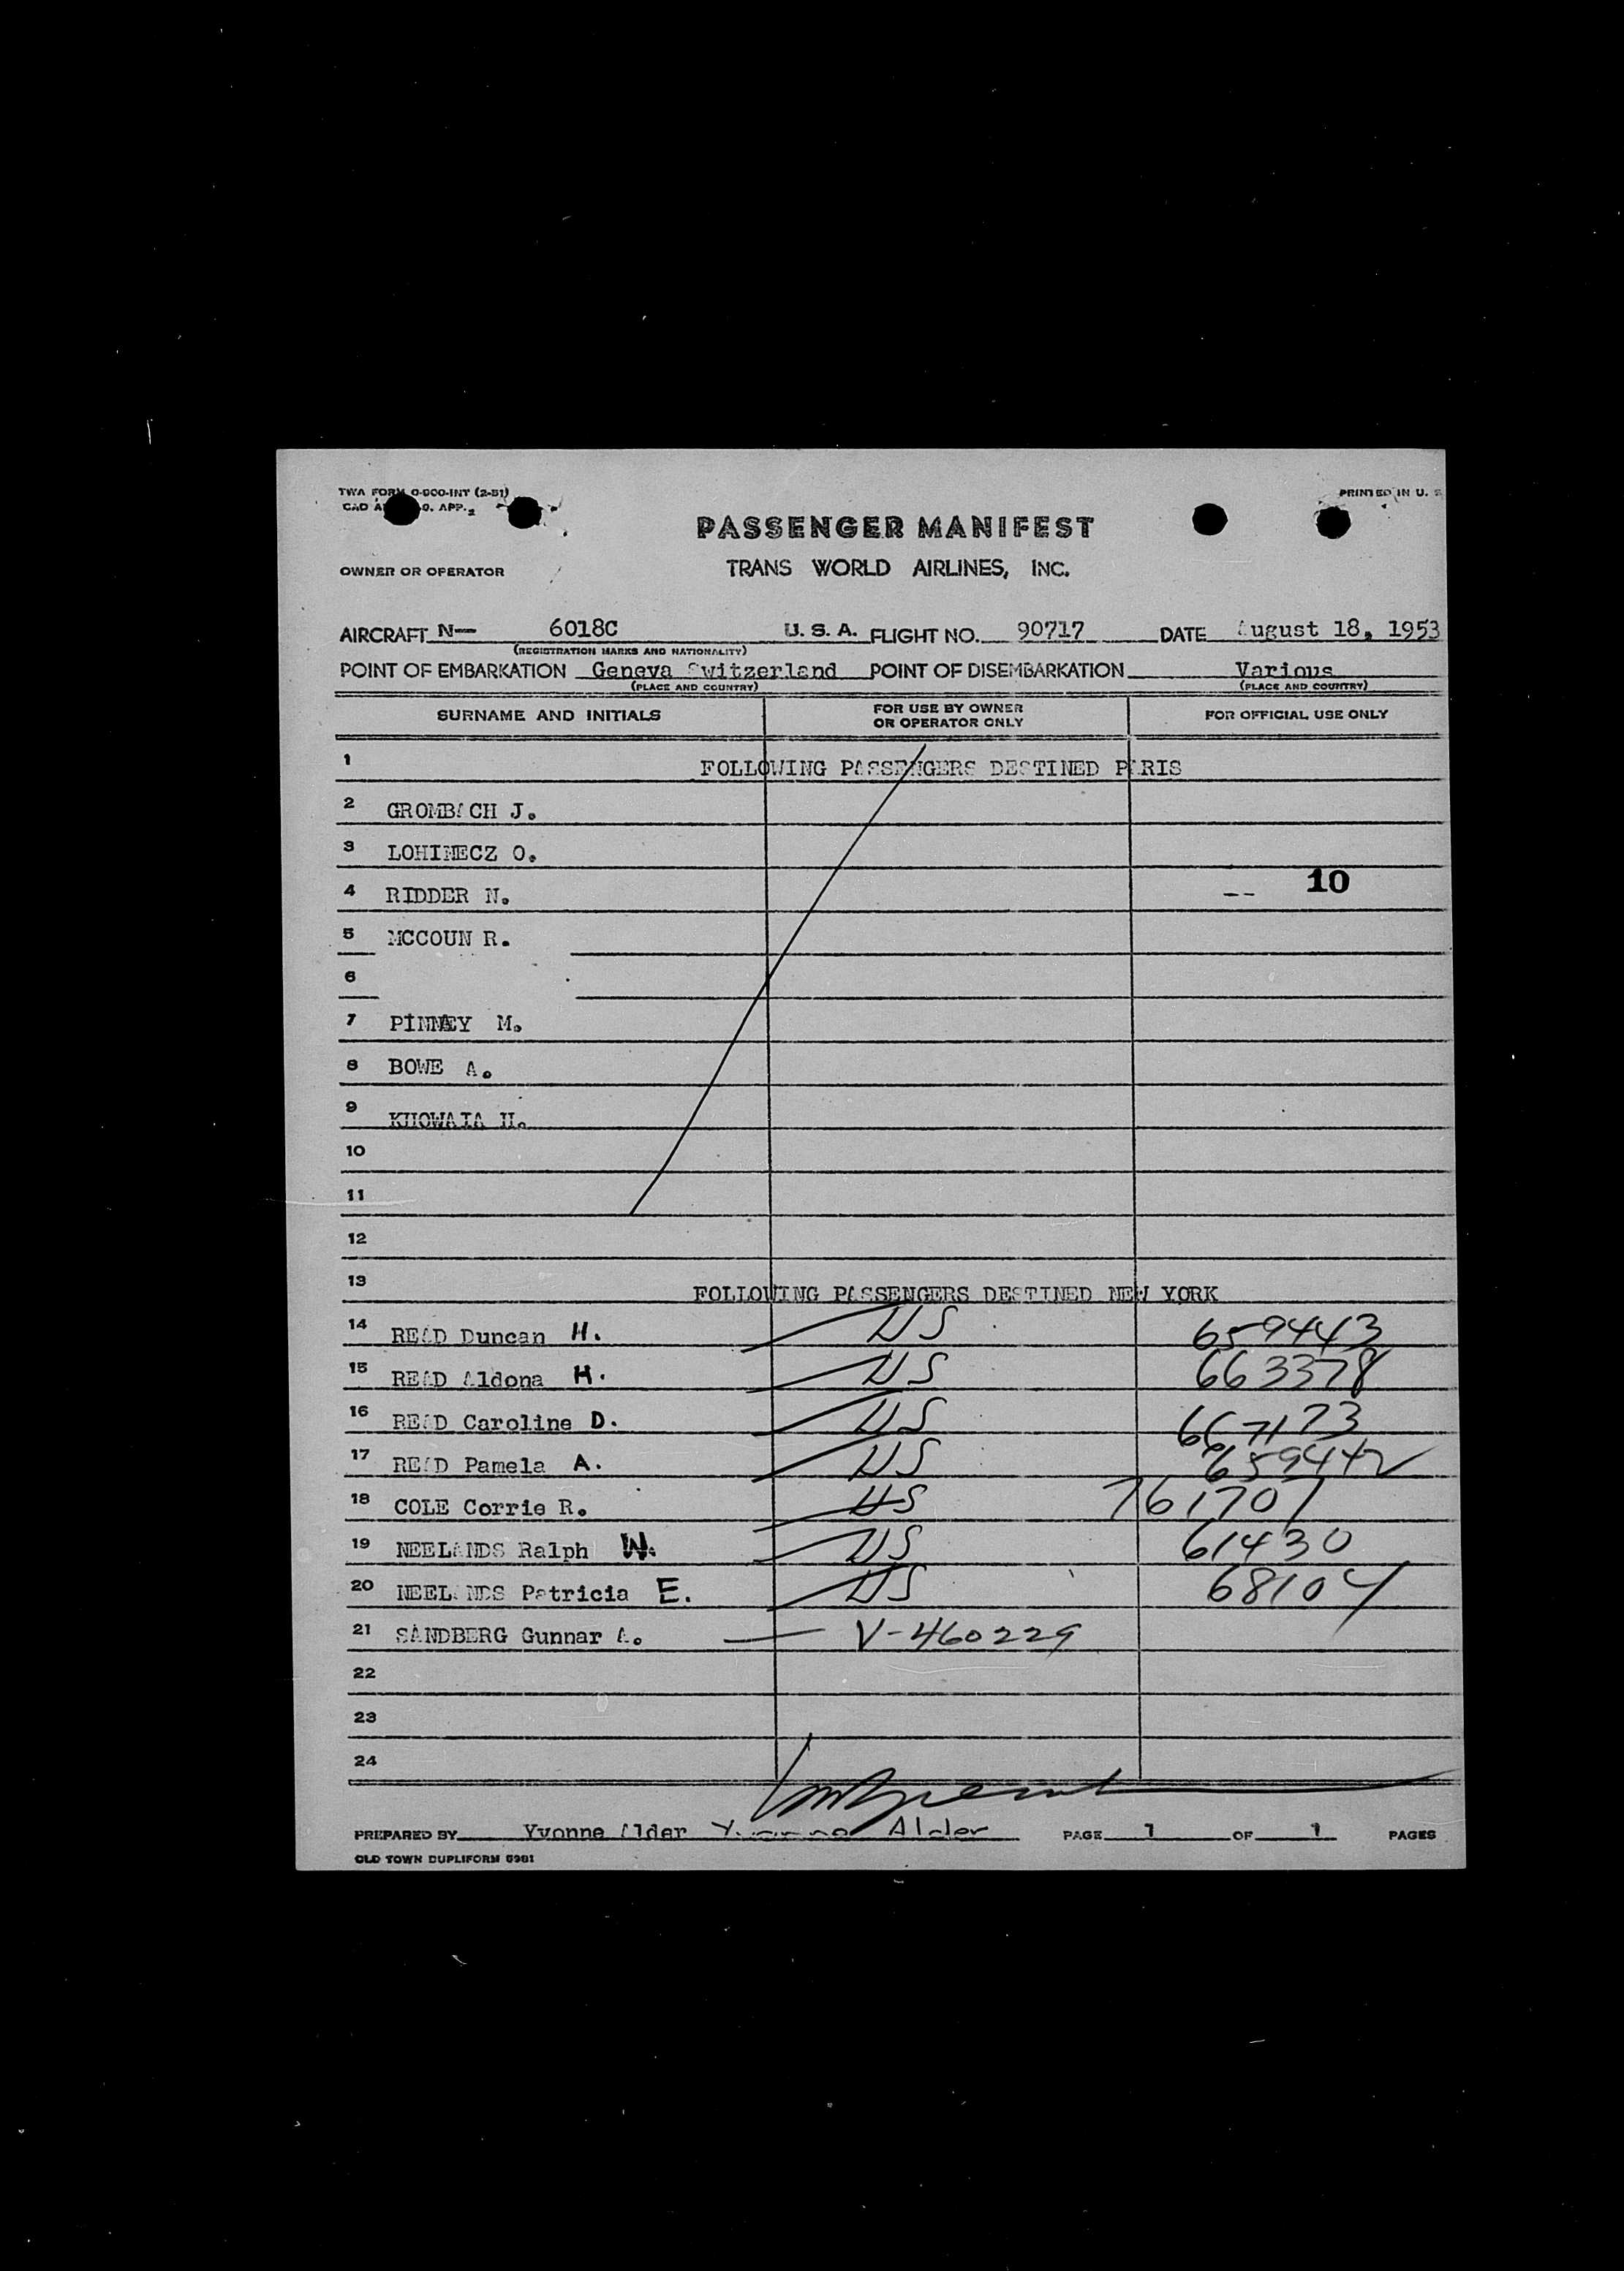 TWA FORM O-900-INT (2-51)
PRINTED IN U. S
CAO O. APP.
PASSENGER MANIFEST
OWNER OR OPERATOR TRANS WORLD AIRLINES, INC.
AIRCRAFT N— 6018C U. S. A. FLIGHT NO. 90717 DATE August 18, 1953
(REGISTRATION MARKS AND NATIONALITY)
POINT OF EMBARKATION Geneva Switzerland POINT OF DISEMBARKATION Various
(PLACE AND COUNTRY) (PLACE AND COUNTRY)
SURNAME AND INITIALS FOR USE BY OWNER OR OPERATOR ONLY FOR OFFICIAL USE ONLY
1 FOLLOWING PASSENGERS DESTINED PARIS
2 GROMBACH J.
3 LOHINECZ O.
4 RIDDER N. -- 10
5 MCCOUN R.
6
7 PINNEY M.
8 BOWE A.
9 KHOWAIA H.
10
11
12
13 FOLLOWING PASSENGERS DESTINED NEW YORK
14 READ Duncan H. US 659443
15 READ Aldona H. US 663378
16 READ Caroline D. US 667173
17 READ Pamela A. US 659442
18 COLE Corrie R. US 761707
19 NEELANDS Ralph W. US 61430
20 NEELANDS Patricia E. US 68104
21 SANDBERG Gunnar A. — V-460229
22
23
24
PREPARED BY Yvonne Alder Yvonne Alder PAGE 1 OF 1 PAGES
OLD TOWN DUPLIFORM 5981